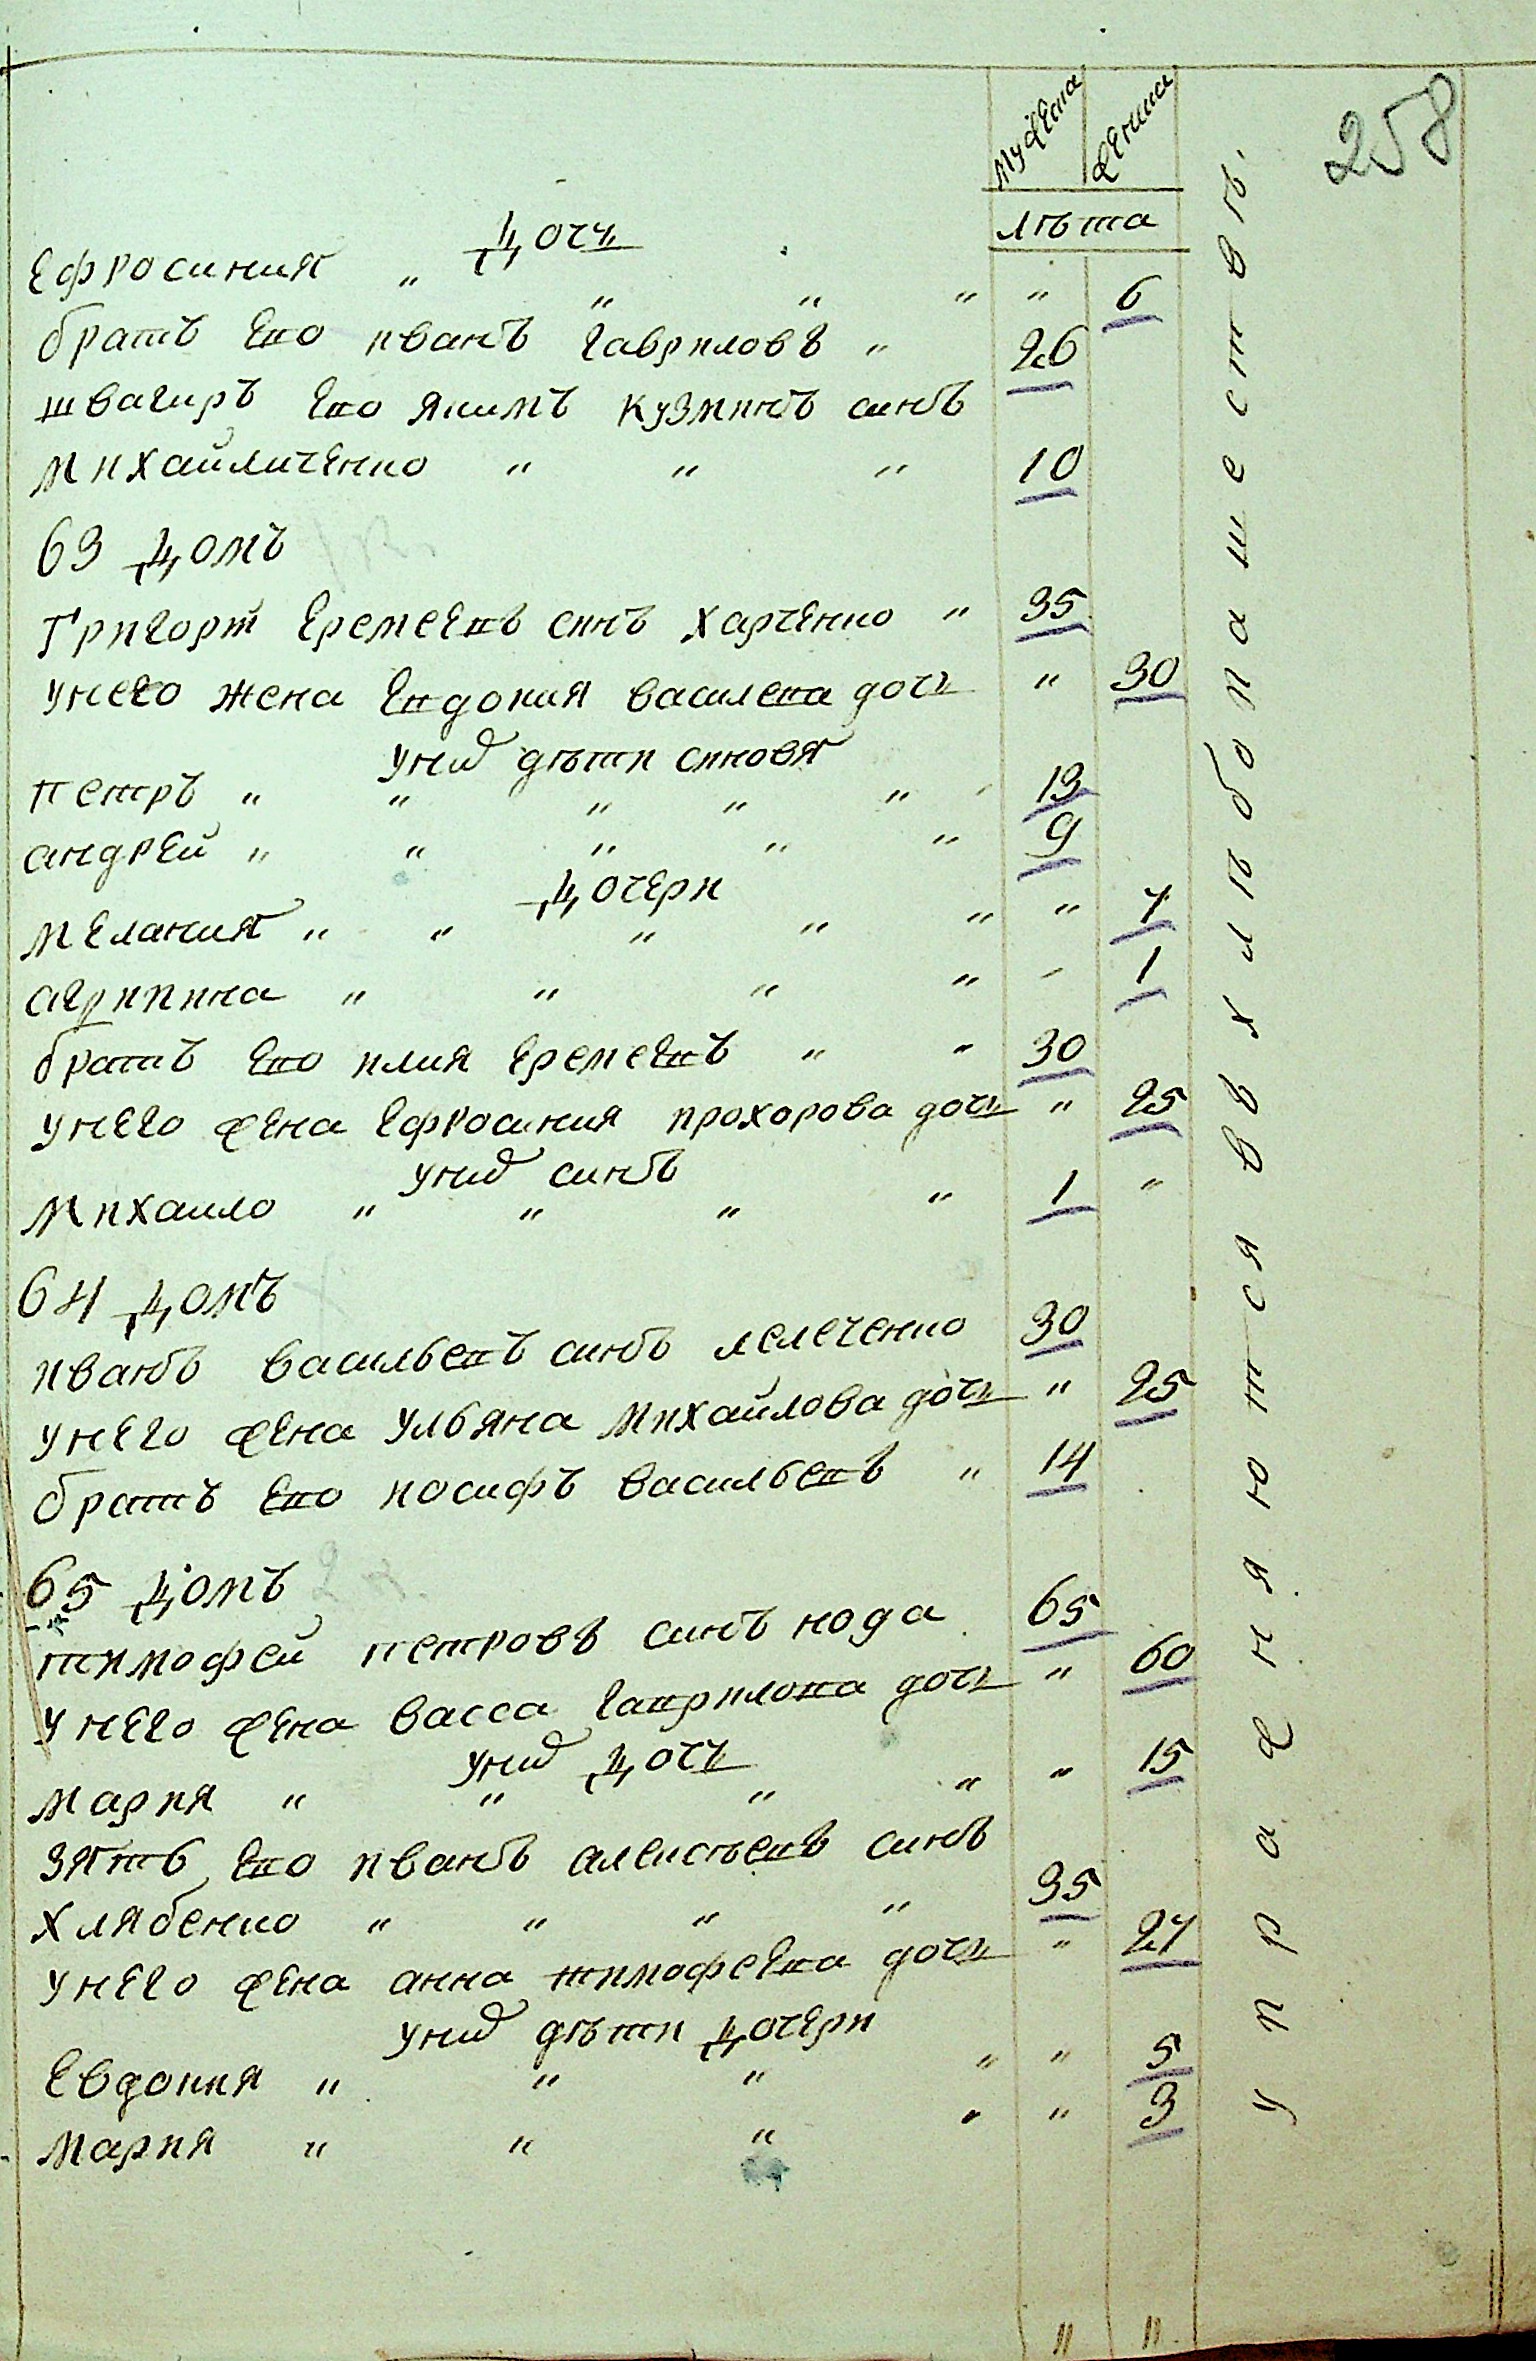 258
мужеска женска
лѣта
Дочъ
Ефросиния " " " " " 6
братъ Его иванъ Гавриловъ " 26
швагиръ Его якимъ кузминъ синъ
михайличенко " " " 10
63 Домъ
Григорій Еремеевъ синъ харченко " 35
унего жена Евдокия василева дочъ " 30
уних дѣти синовя
петръ " " " " " 13
андрей " " " " " 9
Дочери
мелания " " " " " " 7
агрипина " " " " - 1
братъ Его илия Еремеевъ " " 30
унего жена Ефросиния прохорова дочъ " 25
уних синъ
михаило " " " " 1 "
64 Домъ
иванъ васильевъ синъ лелеченко 30
унего жена ульяна михайлова дочъ " 25
братъ Его иосифъ васильевъ " 14
65 Домъ
тимофей петровъ синъ кода 65
унего жена васса гаврилова дочъ " 60
уних Дочъ
мария " " " " " 15
зять Его иванъ алексѣевъ синъ
хлябенко " " " " 35
унего жена анна тимофеева дочъ " 27
уних дѣти Дочери
Евдокия " " " " " 5
мария " " " " " 3
" "
упражняются в хлѣбопашествѣ.